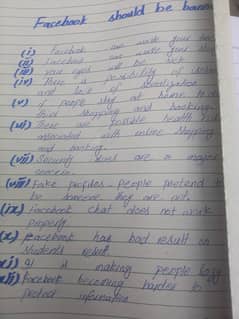 Facebook should be bann
(i) Facebook can make your
(ii) Facebook can make your
(iii) your eyes will be sick
(iv) There is a possibility of
and lack of
(v) if people stay at home to do
their shopping and banking
(vi) There are possible health
associated with online shopping
and banking.
(vii) Security are a major
concern.
(viii) Fake profiles. people pretend to
be someone they are not.
(ix) Facebook chat does not work
properly
(x) Facebook has bad result on
students
xi) is making people lazy
xii) Facebook becoming harder to